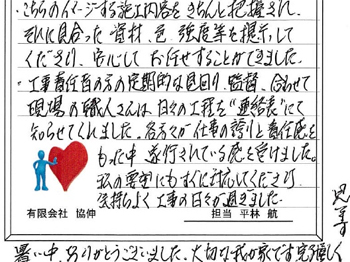 ・こちらのイメージする施工内容をきちんと把握され、
それに見合った資材、色、強度等を提示して
くださり、安心してお任せすることができました。
・工事責任者の方の定期的な見回り、監督、合わせて
現場の職人さんは、日々の工程を“連絡表”にて
知らせてくれました。各方々が仕事の誇りと責任感を
もった中 遂行されている感を受けました。
私の要望にもすぐに対応してくださり、
気持ちよく工事の日々が過ぎました。
有限会社 協伸
担当 平林 航
暑い中、ありがとうございました。大切な我が家です